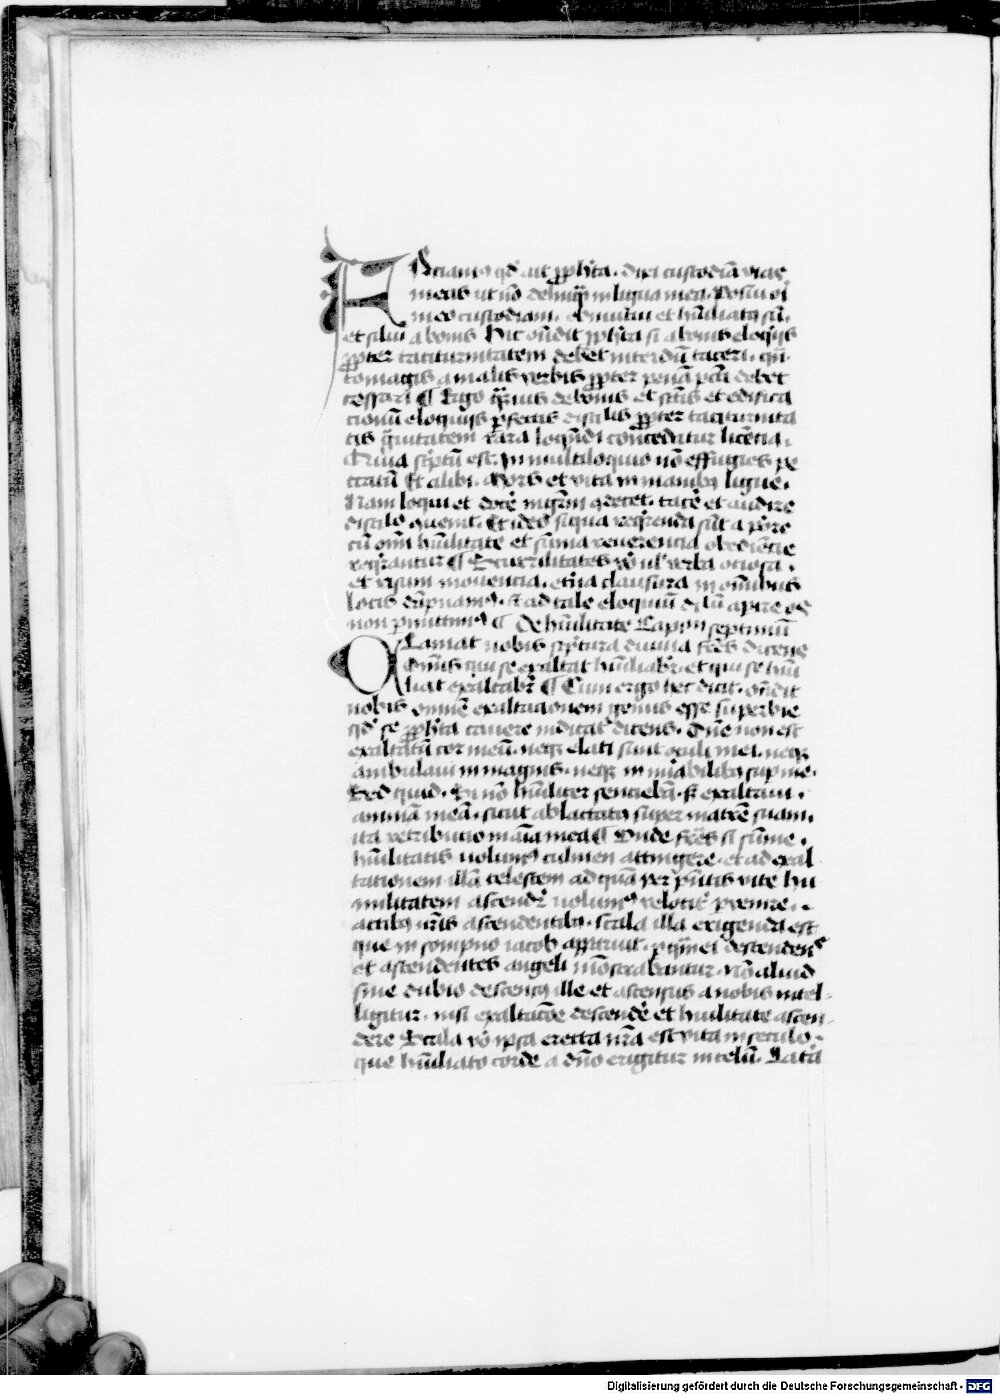 FAciamus qd' ait ppheta. Dixi custodiā vias
meas ut nō delinquā in ligua mea. Posui ori
meo custodiam. obmutui et humiliatꝰ sū.
et silui a bonis Hic oñdit ppheta si a bonis eloquijs
ppter taciturnitatem debet interdū taceri. quā
tomagis a malis verbis ppter penā pcti debet
cessari ¶ Ergo quāuis de bonis et sctis et edifica
cionū eloquijs pfectis discipulis ppter taciturnita
tis grauitatem rara loquendi concedatur licēcia.
Quia scptū est. In multiloquio nō effugies pe
ccatū Et alibi. Mors et vita in manibꝫ ligue.
Nam loqui et docē mgrm 9decet. tacē et audire
discipulo 9uenit. Et ideo siqua reqrenda sūt a p'ore
cū omi hūilitate et sūma reuerencia obediēcie
requirantur ¶ Scurrilitates vō ul' verba ociosa.
et risum mouencia. etna clausura in oībus
locis dāpnamꝰ. et ad tale eloquiū disclm apire os
non pmittimꝰ ¶ De hūilitate Capm septimū
CLamat nobis scptura diuina fres dicens
Omnis qui se exaltat hūiliabit. et qui se humi
liat exaltabit ¶ Cum ergo hec dicit. oñdit
nobis omnē exaltacionem genus esse superbie
qd' se ppheta cauere indicat dicens. Dne non est
exaltatū cor meū. neqꝫ elati sunt oculi mei. neqꝫ
ambulaui in magnis. neqꝫ in mirabilibꝫ sup me.
Sed quid. Si nō hūiliter sentiebā. sꝫ exaltaui.
animā meā. sicut ablactatꝰ super matrē suam.
ita retribucio in aīa mea ¶ Vnde fres si sūme.
hūilitatis uolumꝰ culmen attingere. et ad exal
tationem illā celestem ad quā per pñtis vite hu
militatem ascendit uolumꝰ velocit pvenire.
actibꝫ nr̄is ascendentibꝫ. scala illa erigenda est
que in sompno iacob apparuit. p quam ei descendens
et ascendentes angeli mōstrabantur. Nō aliud
sine dubio descensꝰ ille et ascensus a nobis intel-
ligitur. nisi exaltacōe descendē et hūilitate ascen-
dere Scala vō ipsa erecta nr̄a est vita in seculo.
que hūiliato corde a dño erigitur in celū. Latā
Digitalisierung gefördert durch die Deutsche Forschungsgemeinschaft - DFG